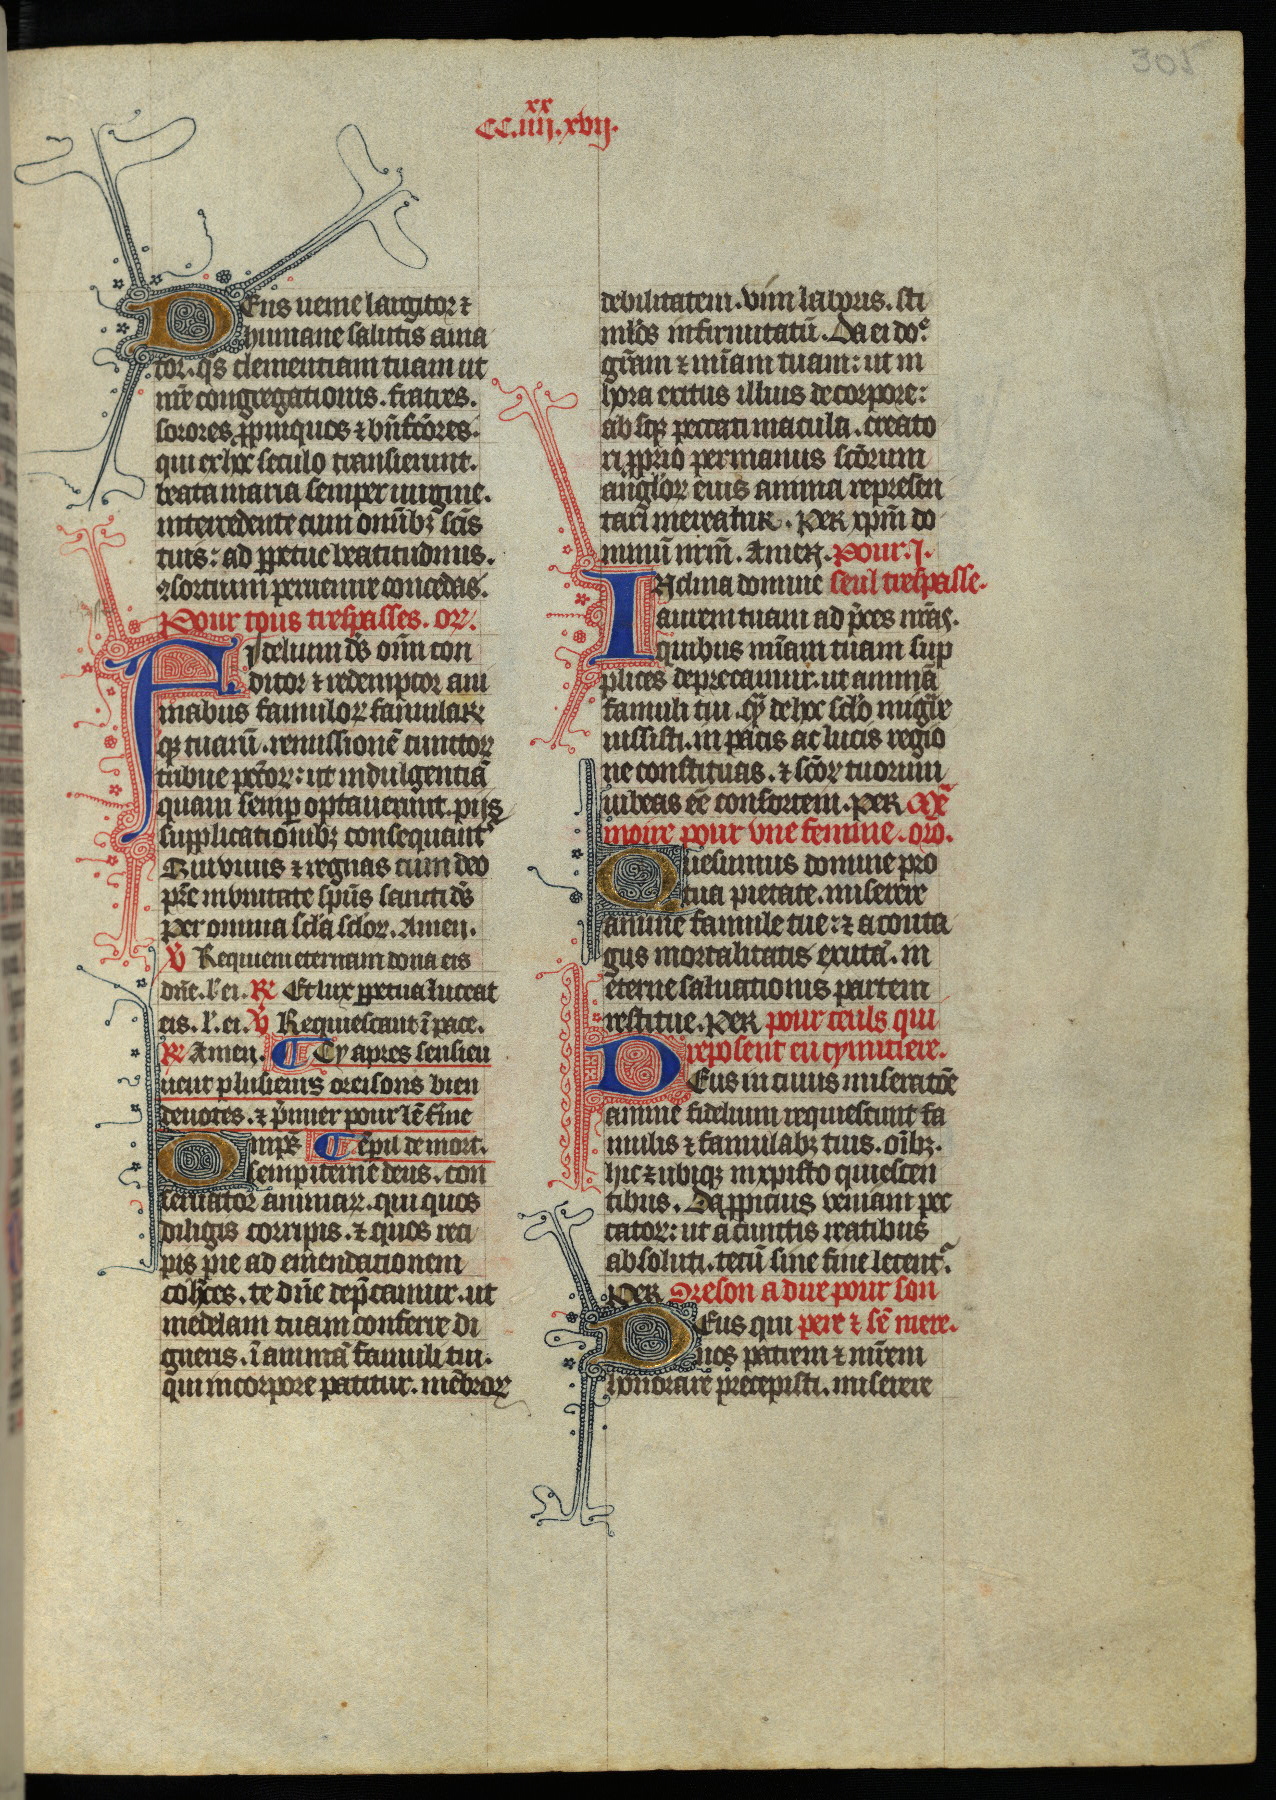 305
xx
CC.iiij.xvij.
Deus uenie largitor ⁊
humane salutis ama
tor. qs clementiam tuam ut
nr̄e congregationis. fratres.
sorores ꝓpinquos ⁊ bn̄fc̄ores.
qui ex hoc seculo transierunt.
beata maria semper uirgine.
intercedente cum omībꝫ scīs
tuis: ad ꝑpetue beatitudinis.
ꝯsortium peruenire concedas.
Pour tous trespasses. or̄.
Fidelium ds̄ oīm con
ditor ⁊ redemptor ani
mabus famuloꝝ famulaꝝ
qꝫ tuaꝝ. remissionē cunctoꝝ
tribue pctōꝝ: ut indulgentiā
quam semꝑ optauerunt. pijs
supplicationibꝫ consequant᷑
Qui viuis ⁊ regnas cum deo
pr̄e in vnitate sp̄us sancti ds̄
Per omnia scl̄a scl̄oꝝ. Amen.
℣ Requiem eternam dona eis
dn̄e. l'. ei. ℟ Et lux ꝑpetua luceat
eis. l'. ei. ℣ Requiescant ī pace.
℟ Amen. Cy apres sensieu
uent plusieurs oreisons bien
deuotes. ⁊ p̄mier pour . fēme
Omps̄ Tēpil de mort.
sempiterne deus. con
seruator animaꝝ. qui quos
diligis corripis. ⁊ quos reci
pis pie ad emendationem
coh̄ces. te dn̄e dep̄camur. ut
medelam tuam conferre di
gneris. ī animā famuli tui.
qui in corpore patitur. mēbroꝝ
debilitatem. vim laboris. sti
mlōs infirmitatū. Da ei dōe
gr̄am ⁊ mīam tuam: ut in
hora exitus illius de corpore:
absqꝫ peccati macula. creato
ri ꝓprio per manus scōrum
angloꝝ eius anima represen
tari mereatur. Per xp̄m do
minū nrm̄. Amen. Pour .j.
Inclina domine seul trespasse.
aurem tuam ad p̄ces nrās.
quibus mīam tuam sup
plices deprecamur. ut animā
famuli tui. q̄ de hoc sclo migr̄e
iussisti. in pacis ac lucis regio
ne constituas. ⁊ scōꝝ tuorum
iubeas eē consortem. per Me
moire pour vne femme. orō.
Quesumus domine pro
tua pietate. miserere
anime famule tue: ⁊ a conta
giis mortalitatis exutā. in
eterne saluationis partem
restitue. Per pour ceuls qui
reposent en cymitiere.
Deus in cuius miseratōe
anime fidelium requiescunt fa
mulis ⁊ famulabꝫ tuis. oībꝫ.
hic ⁊ ubiqꝫ in xpisto quiescen
tibus. Da ꝓpicius veniam pec
catoꝝ: ut a cunctis reatibus
absoluti. tecū sine fine letent᷑.
Per Oreson a dire pour son
Deus qui pere ⁊ sē mere.
nos patrem ⁊ mr̄em
honorare precepisti. miserere